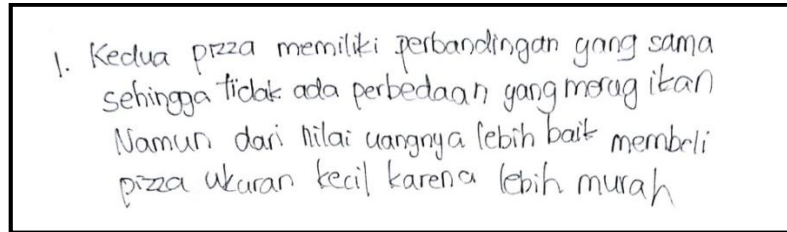 1. Kedua pizza memiliki perbandingan yang sama
sehingga tidak ada perbedaan yang merugikan
Namun dari nilai uangnya lebih baik membeli
pizza ukuran kecil karena lebih murah